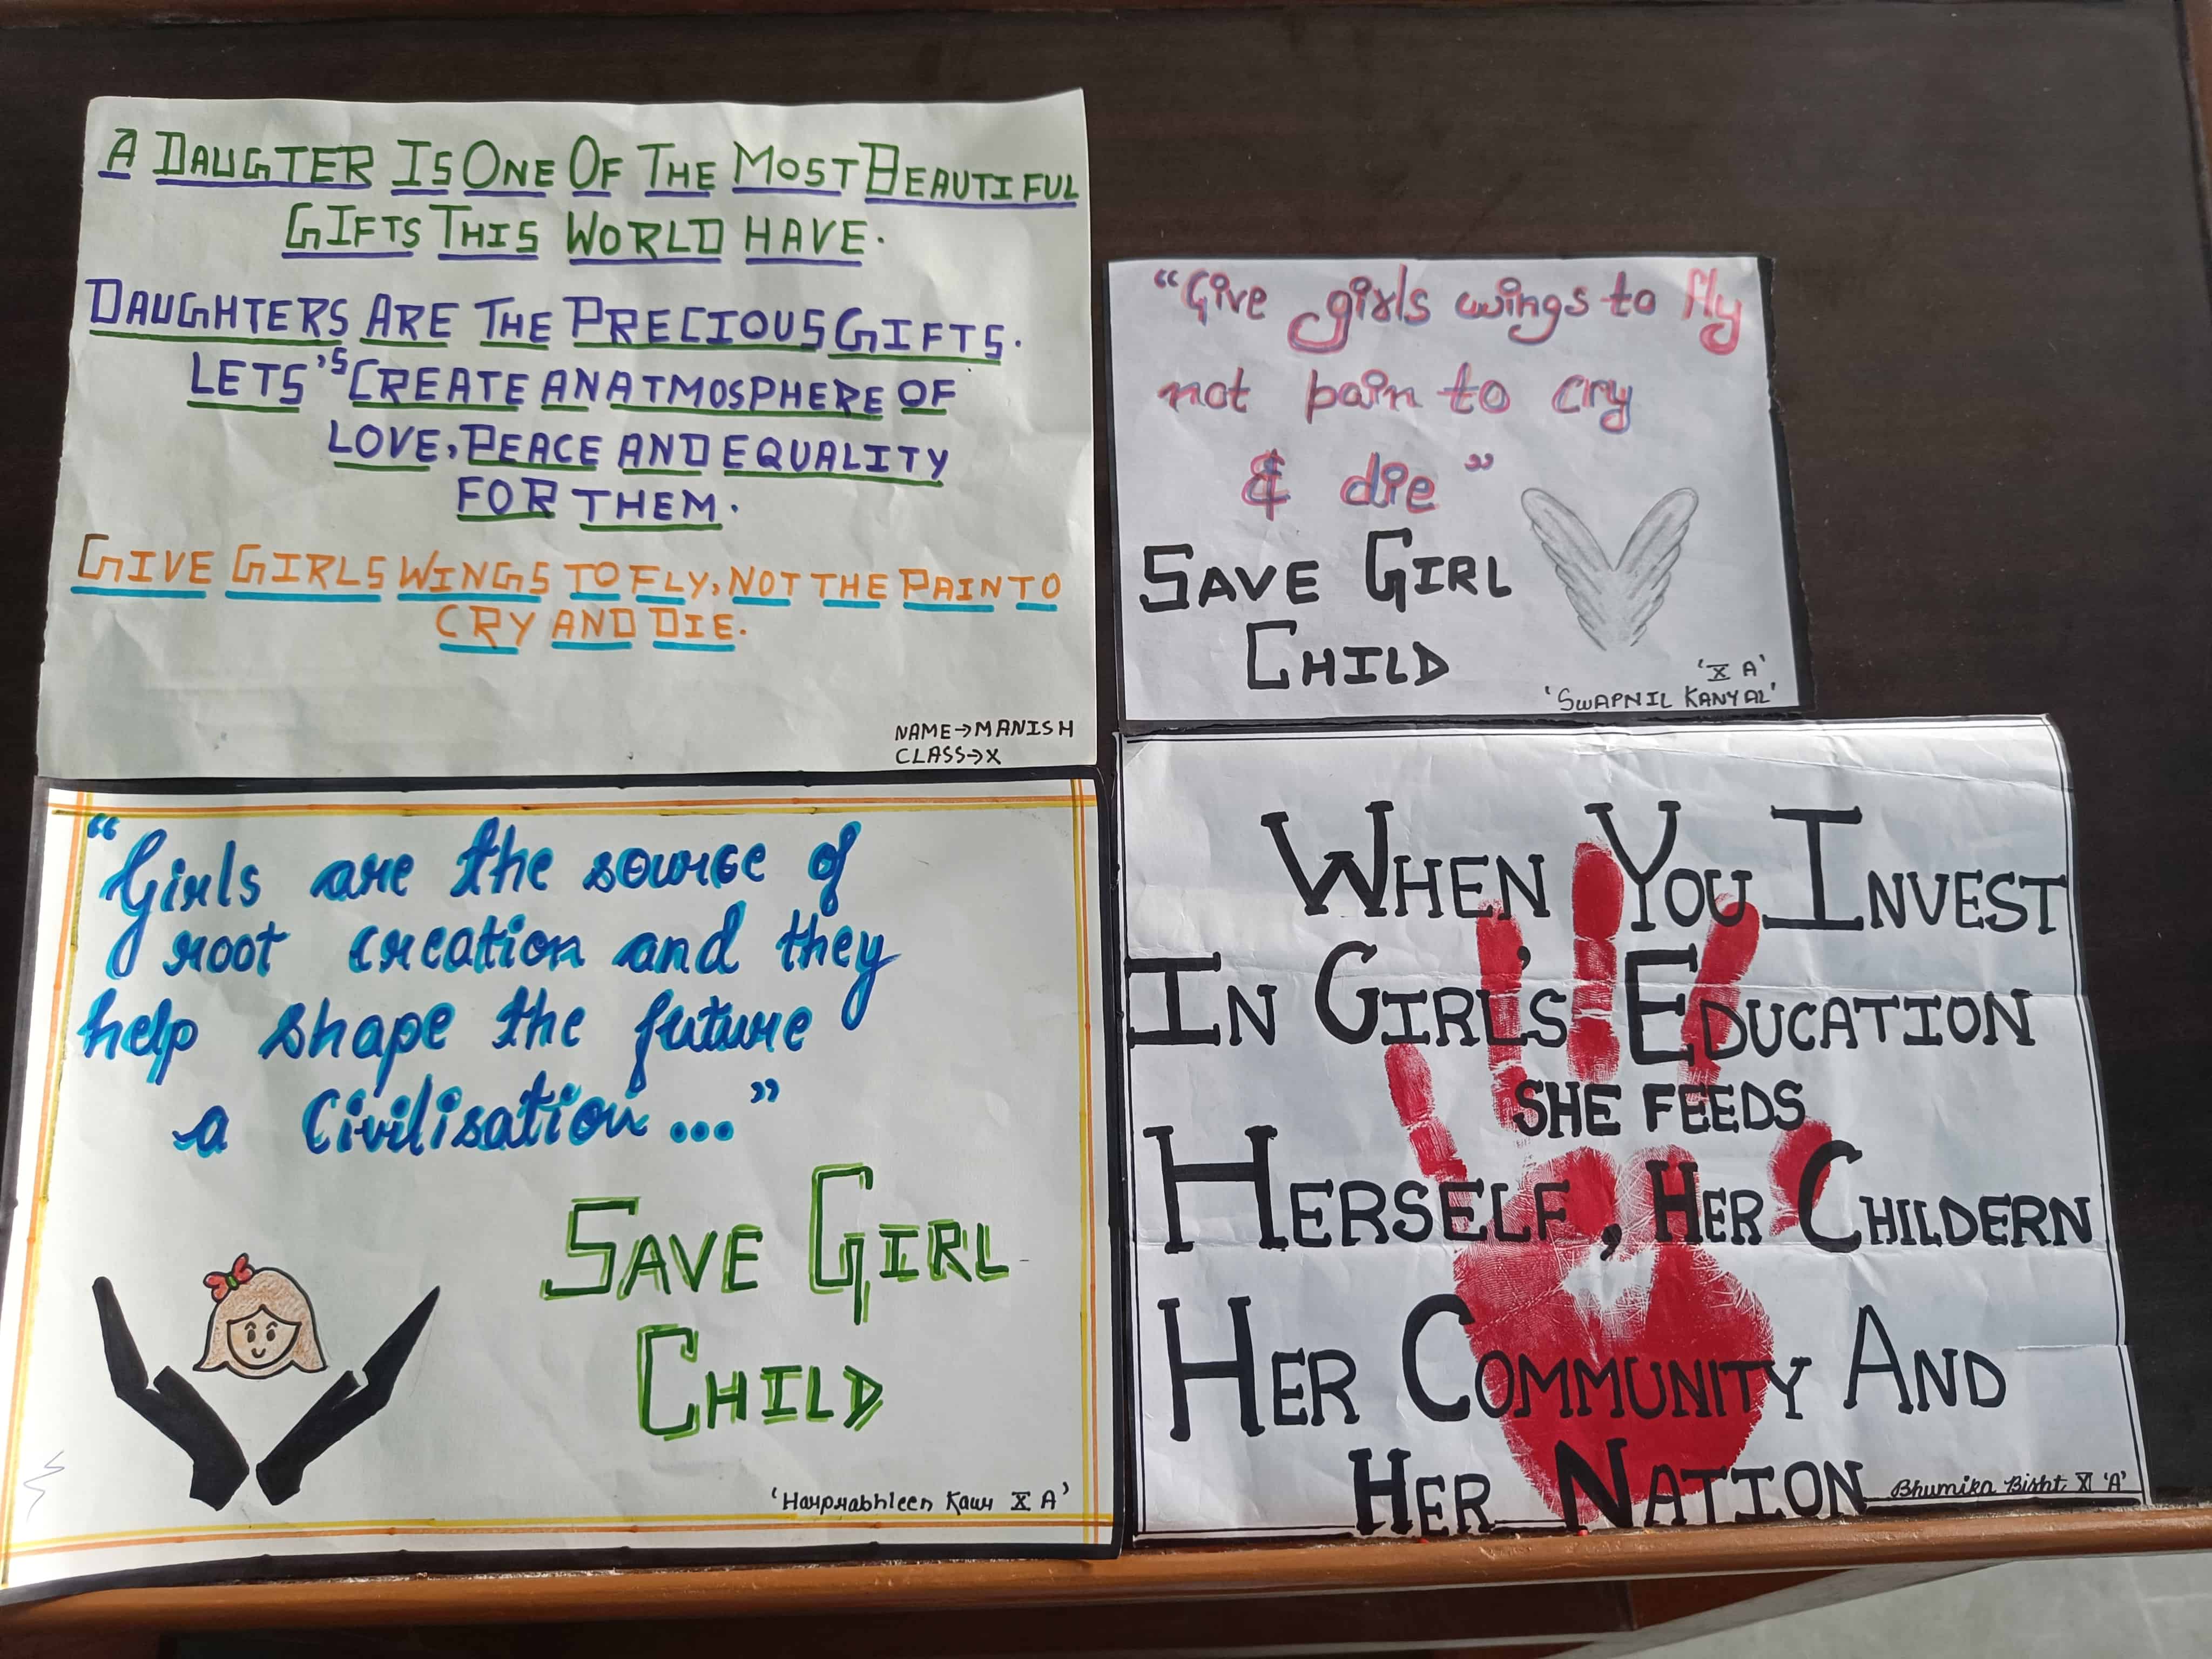 A DAUGTER IS ONE OF THE MOST BEAUTIFUL
GIFTS THIS WORLD HAVE.
DAUGHTERS ARE THE PRECIOUS GIFTS.
LETS'S CREATE AN ATMOSPHERE OF
LOVE, PEACE AND EQUALITY
FOR THEM.
GIVE GIRLS WINGS TO FLY, NOT THE PAIN TO
CRY AND DIE.
NAME→MANISH
CLASS→X
"Give girls wings to fly
not pain to cry
& die"
SAVE GIRL
CHILD
'X A'
'SWAPNIL KANYAL'
"Girls are the source of
root creation and they
help shape the future
a Civilisation..."
SAVE GIRL
CHILD
'Harprabhleen Kaur X A'
WHEN YOU INVEST
IN GIRL'S EDUCATION
SHE FEEDS
HERSELF, HER CHILDERN
HER COMMUNITY AND
HER NATION
Bhumika Bisht XI 'A'